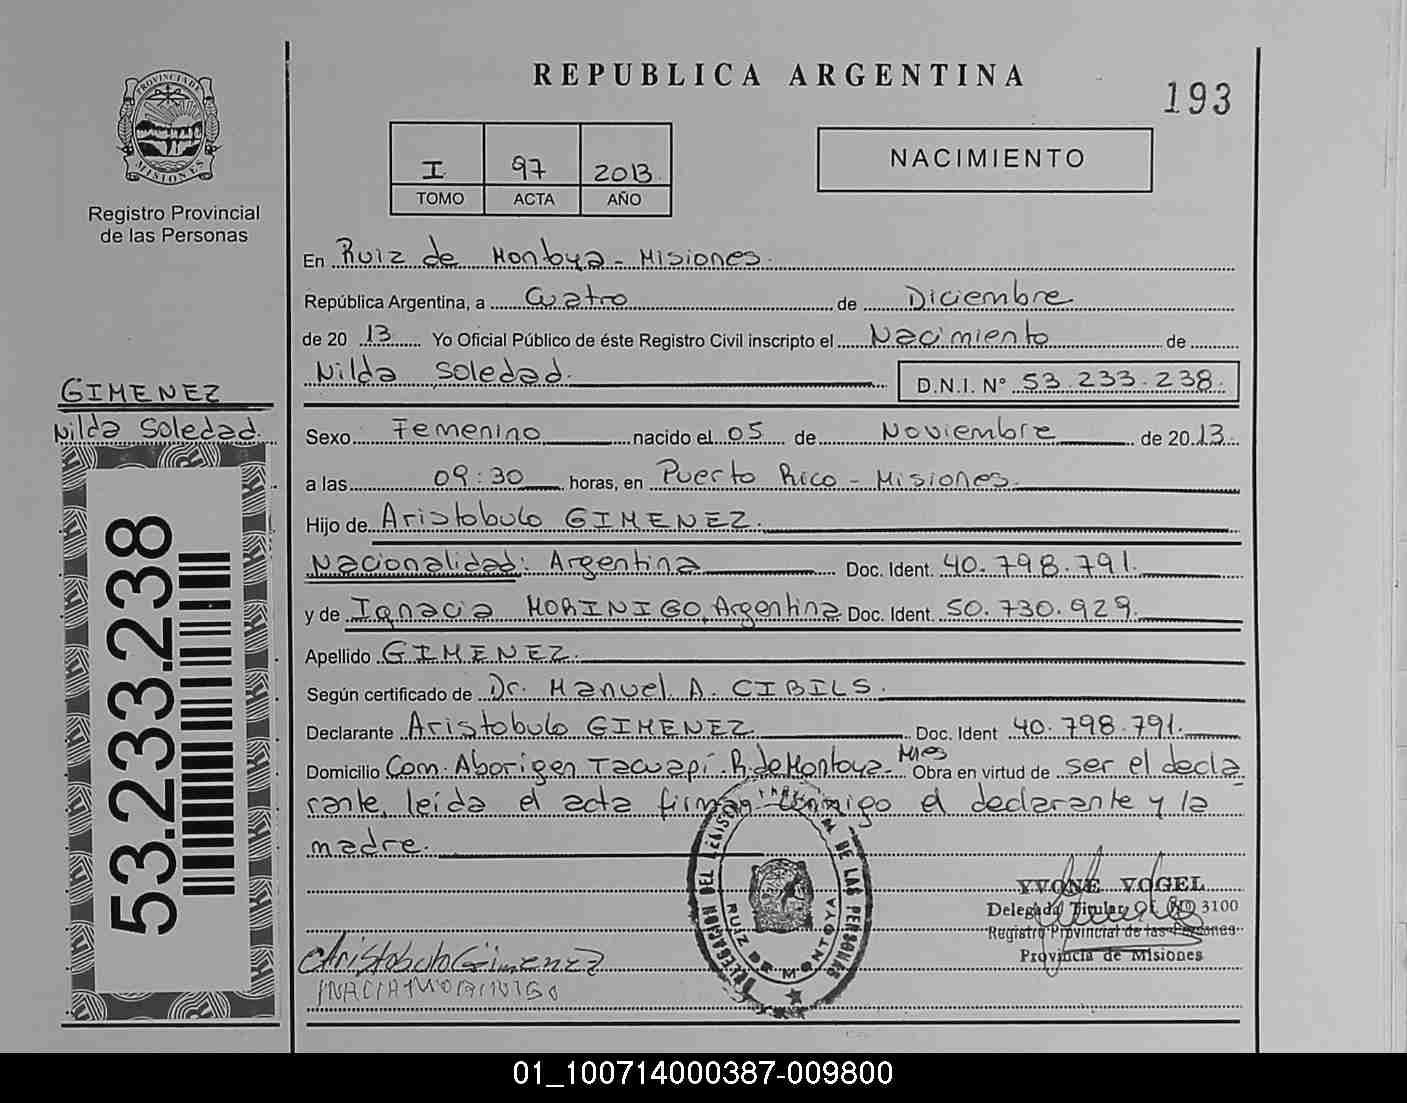 REPUBLICA ARGENTINA
193
PROVINCIA DE
MISIONES
Registro Provincial
de las Personas
I 97 2013
TOMO ACTA AÑO
NACIMIENTO
En Ruiz de Montoya - Misiones.
República Argentina, a Cuatro de Diciembre
de 20 13 Yo Oficial Público de éste Registro Civil inscripto el Nacimiento de
Nilda Soledad. D.N.I. N° 53.233.238.
GIMENEZ
Nilda Soledad.
53.233.238
Sexo Femenino nacido el 05 de Noviembre de 20 13
a las 09:30 horas, en Puerto Rico - Misiones.
Hijo de Aristobulo GIMENEZ.
Nacionalidad: Argentina Doc. Ident. 40.798.791.
y de Ignacia MORINIGO, Argentina Doc. Ident. 50.730.929.
Apellido GIMENEZ.
Según certificado de Dr. Manuel A. CIBILS.
Declarante Aristobulo GIMENEZ Doc. Ident 40.798.791.
Domicilio Com. Aborigen Tacuapí. R. de Montoya - Mnes Obra en virtud de ser el decla
rante, leída el acta firman conmigo el declarante y la
madre.
DE LAS PERSONAS
RUIZ DE MONTOYA
YVONE VOGEL
Delegada Titular Of. Nº 3100
Registro Provincial de las Personas
Provincia de Misiones
Aristobulo Gimenez
01_100714000387-009800